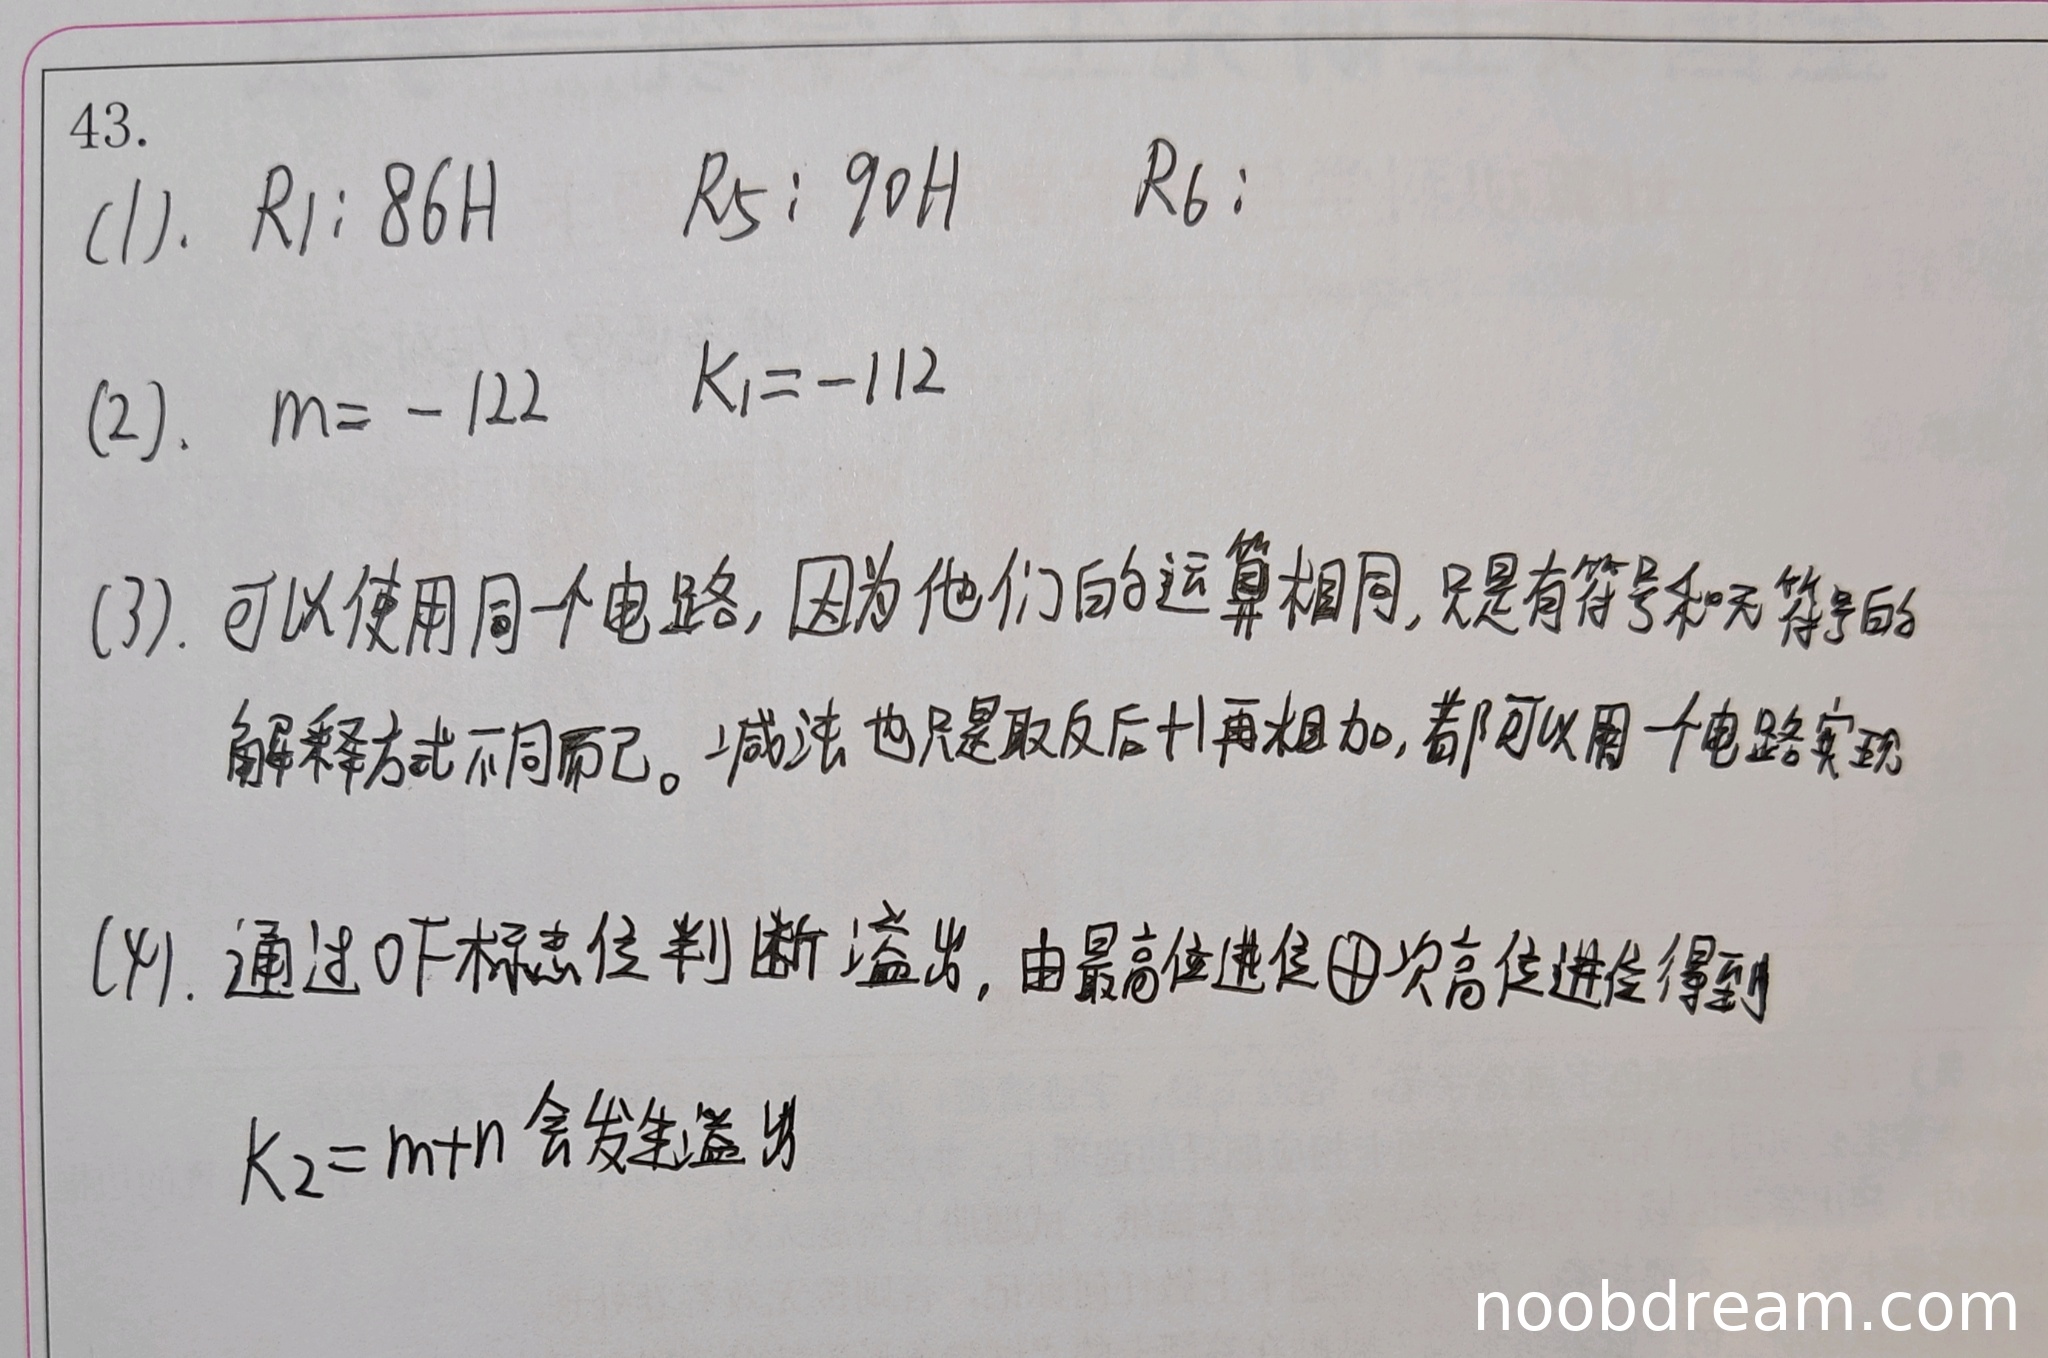 43.
(1). R1: 86H R5: 90H R6:
(2). m= -122 K1=-112
(3). 可以使用同一个电路, 因为他们的运算相同, 只是有符号和无符号的
解释方式不同而已。减法也只是取反后+1再相加, 都可以用一个电路实现
(4). 通过OF标志位判断溢出, 由最高位进位⊕次高位进位得到
K2=m+n会发生溢出
noobdream.com